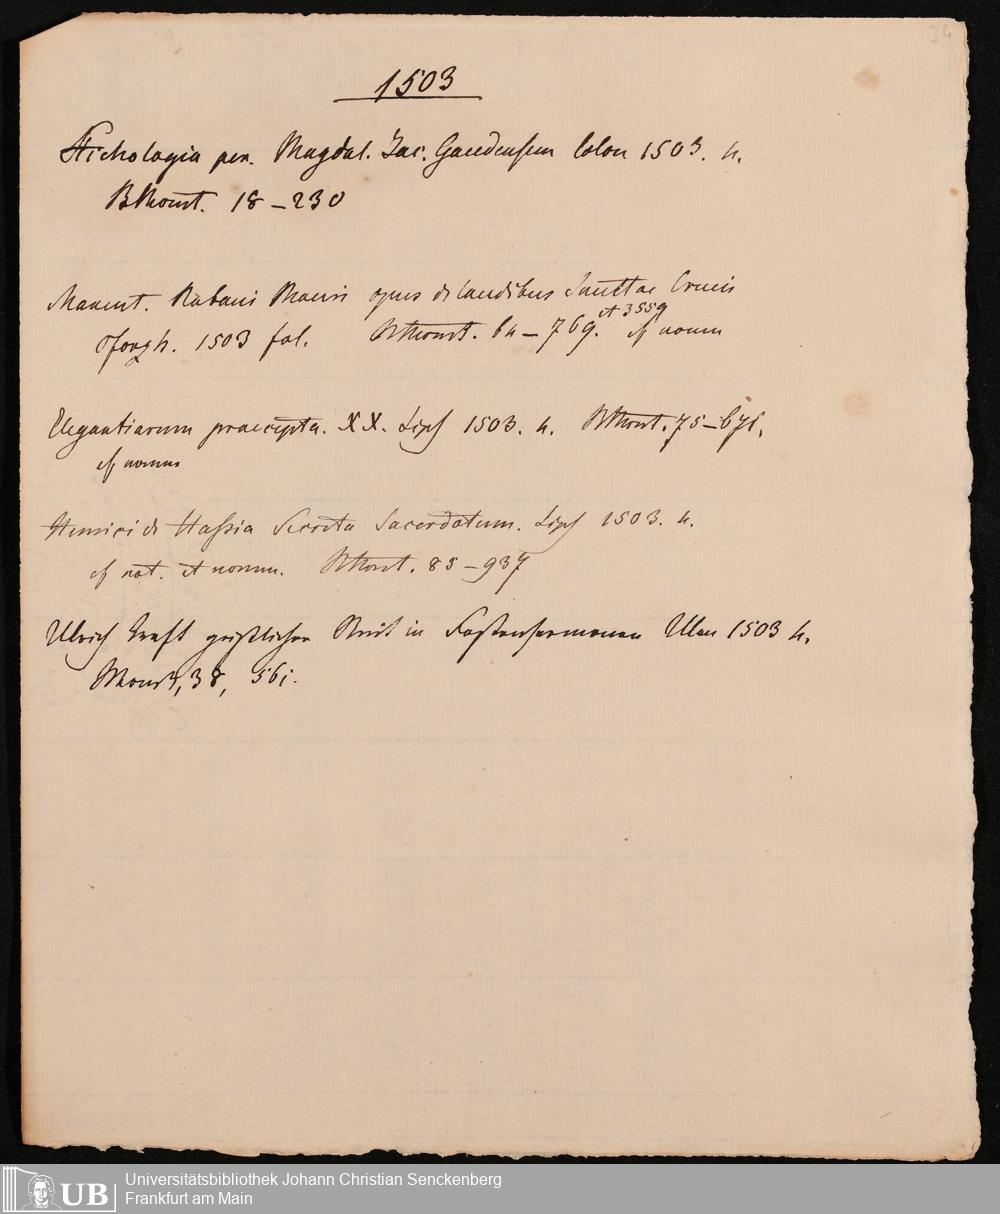 1503
Stichologia per. Magdal. Jac. Gaudensem Colon 1503. 4.
BMont. 18-230
Magnent. Rabani Mauri opus de laudibus Sanctae Crucis
et 3559
Pforzh. 1503 fol. BMont. 64-769. cf nomm
Elegantiarum praecepta. XX. Lips 1503. 4. BMont. 75-676.
cf nomm
Henrici de Hassia Secreta Sacerdotum. Lips 1503. 4.
cf not. et nomm. BMont. 85-937
Ulrich Kraft geistlicher Streit in Fastensermonen Ulm 1503 4.
BMont, 38, 561.
Universitätsbibliothek Johann Christian Senckenberg
Frankfurt am Main
UB